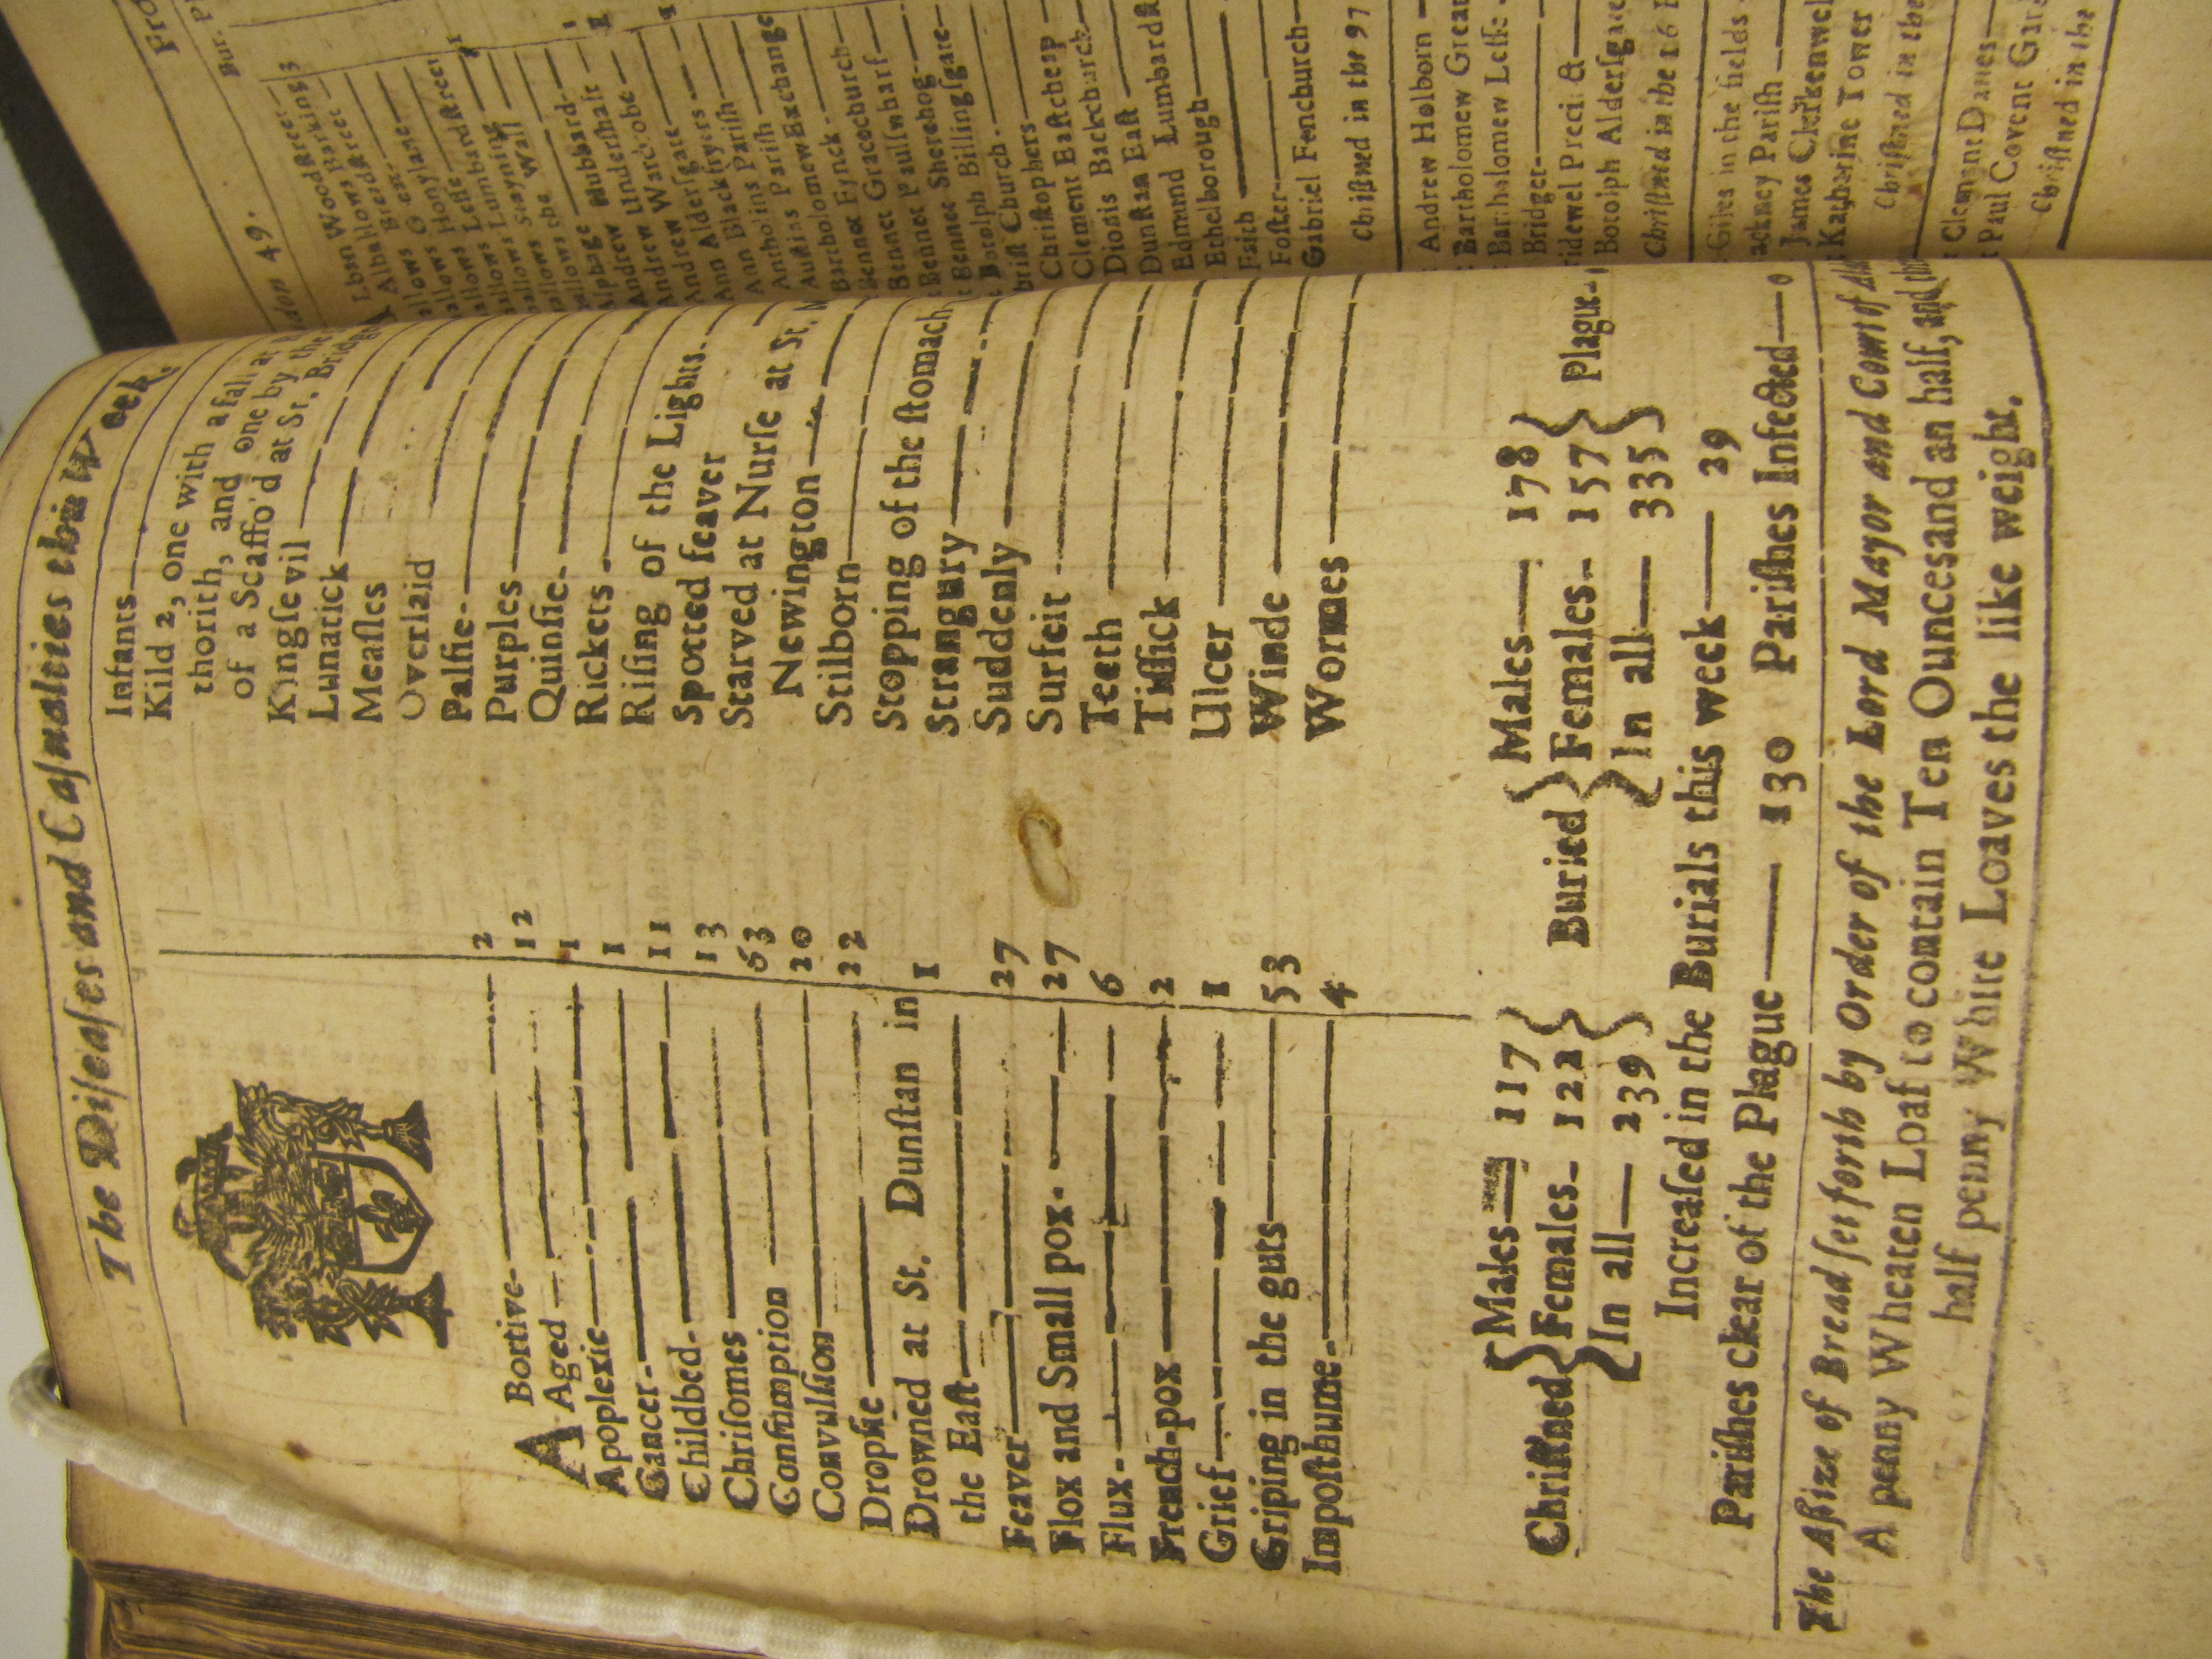 The Diseases and Casualties this Week.
ABortive- 2
Aged 12
Apoplexie 1
Cancer- 1
Childbed- 11
Chrisomes 13
Consumption 63
Convulsion 20
Dropsie 22
Drowned at St. Dunstan in
the East 1
Feaver 27
Flox and Small pox- 27
Flux- 6
French-pox 2
Grief 1
Griping in the guts 53
Imposthume- 4
Infants
Kild 2, one with a fall at
thorith, and one by the
of a Scaffo'd at St. Bridg
Kingsevil
Lunatick
Measles
Overlaid
Palsie-
Purples
Quinsie-
Rickets
Rising of the Lights
Spotted feaver
Starved at Nurse at St. M
Newington
Stilborn
Stopping of the stomach
Strangury
Suddenly
Surfeit
Teeth
Tissick
Ulcer
Winde
Wormes
Christned Males 117 Females- 122 In all 239
Buried Males 178 Females- 157 In all 335 Plague- 0
Increased in the Burials this week 29
Parishes clear of the Plague 130 Parishes Infected 0
The Assize of Bread set forth by Order of the Lord Mayor and Court of Ald
A penny Wheaten Loaf to contain Ten Ounces and an half, and th
half penny White Loaves the like weight.
Fro
Bur.
don 49.
lban Woodstreet
Alhallows Barking 3
allows Breadstreet
allows Great
allows Honylane
allows Lesse
allows Lumbardstreet
allows Stayning
allows the Wall
lphage
Andrew Hubbard
Andrew Undershaft
Andrew Wardrobe
Ann Aldersgate
Ann Blackfryers
Antholins Parish
Austins Parish
Bartholomew Exchange
Bennet Fynck
Bennet Gracechurch
Bennet Paulswharf
Bennet Sherehog
Botolph Billingsgate
hrist Church
Christophers
Clement Eastcheap
Dionis Backchurch
Dunstan East
Edmund Lumbardst
Ethelborough
Faith
Foster
Gabriel Fenchurch
Christned in the 97
Andrew Holborn
Bartholomew Great
Bartholomew Lesse
Bridget
ridewel Preci: &
Botolph Aldersgate
Christned in the 16
Giles in the fields
ackney Parish
James Clerkenwel
Katharine Tower
Christned in the
Clement Danes
Paul Covent Gar
Christned in the